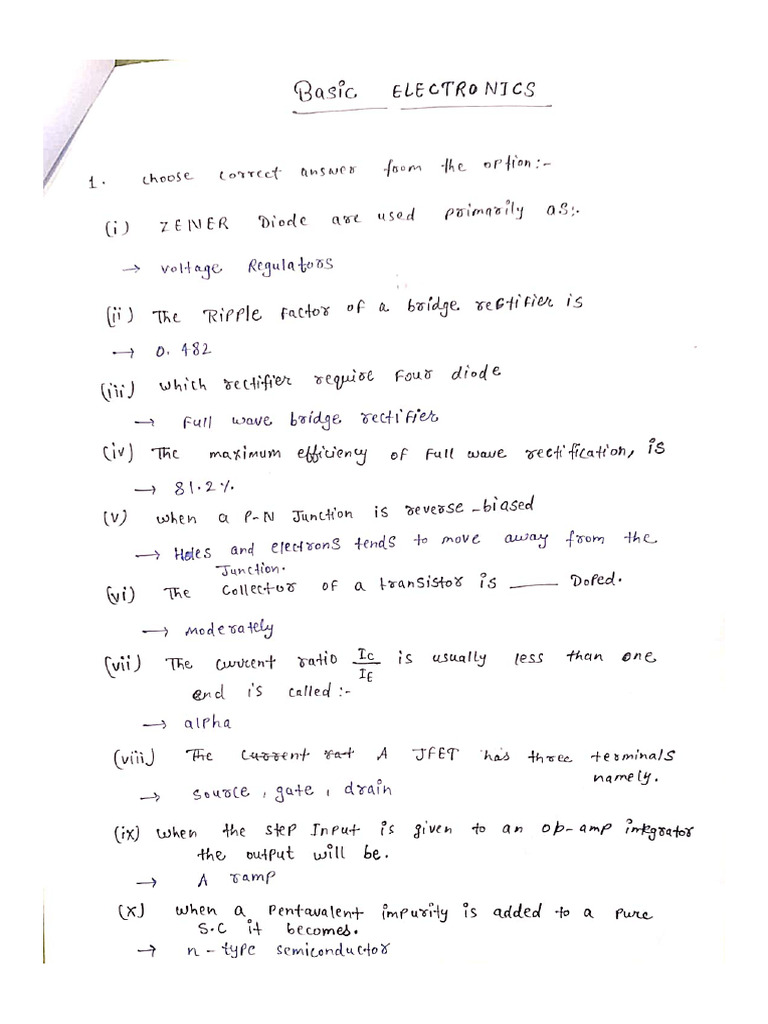 Basic ELECTRONICS
1. choose correct answer from the option:-
(i) ZENER Diode are used primarily as:.
→ voltage Regulators
(ii) The Ripple Factor of a bridge rectifier is
→ 0.482
(iii) which rectifier require Four diode
→ Full wave bridge rectifier
(iv) The maximum efficiency of Full wave rectification, is
→ 81.2%
(v) when a P-N Junction is reverse-biased
→ Holes and electrons tends to move away from the
Junction.
(vi) The Collector of a transistor is ____ Doped.
→ moderately
(vii) The current ratio IC/IE is usually less than one
end is called:-
→ alpha
(viii) The current rat A JFET has three terminals
namely.
→ source, gate, drain
(ix) when the step Input is given to an op-amp integrator
the output will be.
→ A ramp
(x) when a pentavalent impurity is added to a pure
S.C it becomes.
→ n-type semiconductor